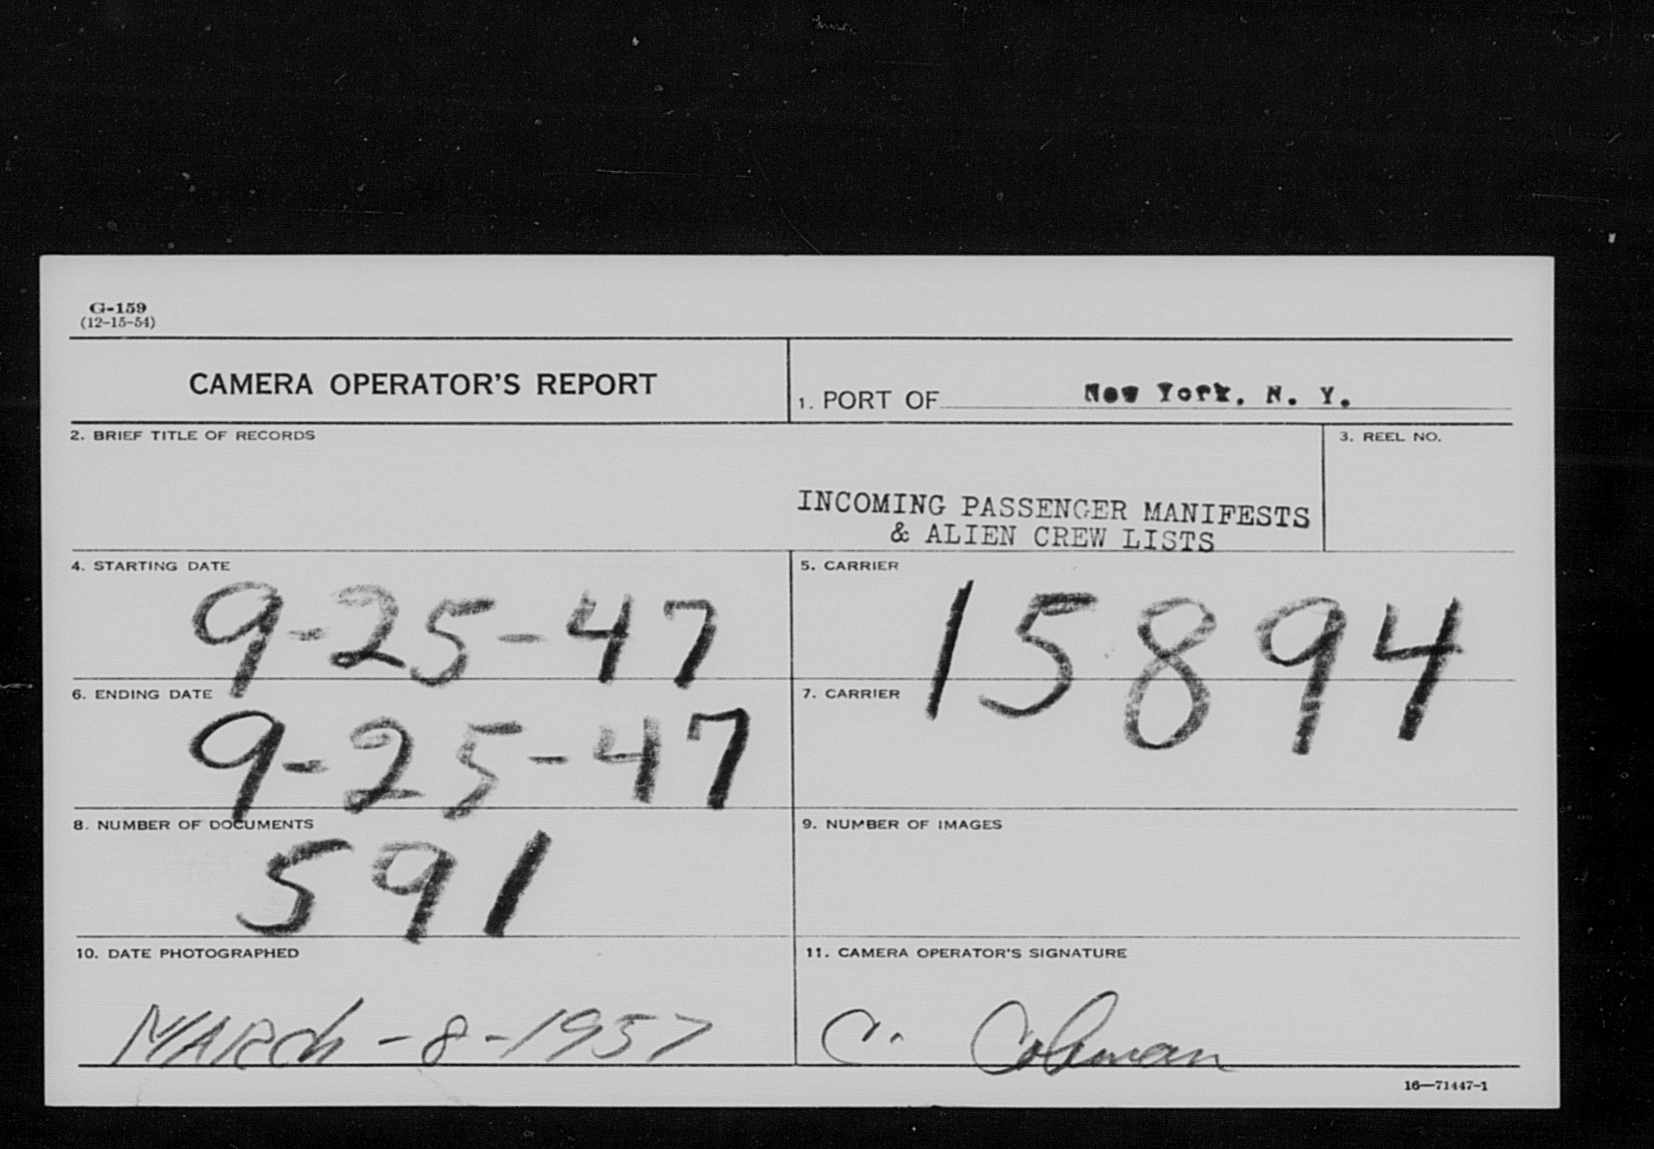 G-159
(12-15-54)
CAMERA OPERATOR'S REPORT
1. PORT OF New York, N. Y.
2. BRIEF TITLE OF RECORDS
3. REEL NO.
INCOMING PASSENGER MANIFESTS
& ALIEN CREW LISTS
4. STARTING DATE
9-25-47
5. CARRIER
15894
6. ENDING DATE
9-25-47
7. CARRIER
8. NUMBER OF DOCUMENTS
591
9. NUMBER OF IMAGES
10. DATE PHOTOGRAPHED
MARch-8-1957
11. CAMERA OPERATOR'S SIGNATURE
C.
16—71447-1